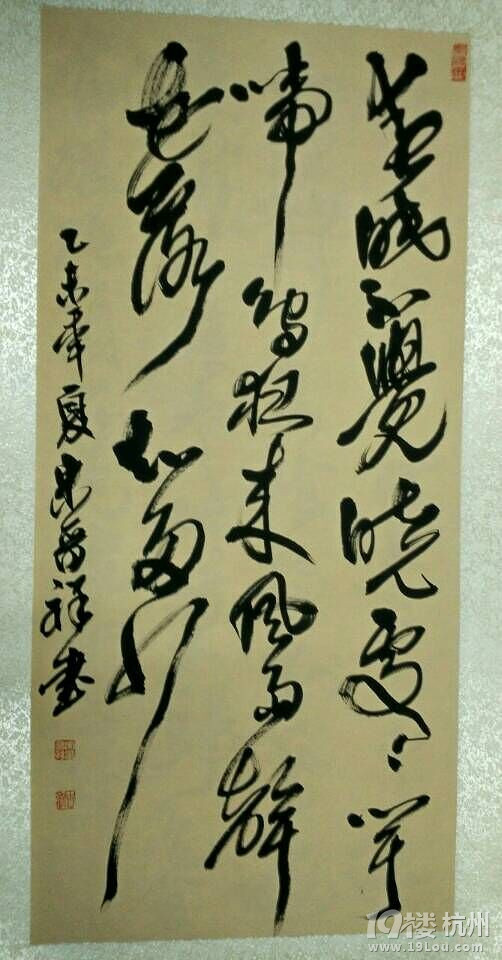 春眠不覺晓處〻闻
啼鸟夜来風雨聲
花落知多少
乙未年夏祥書
19楼 杭州
www.19Lou.com